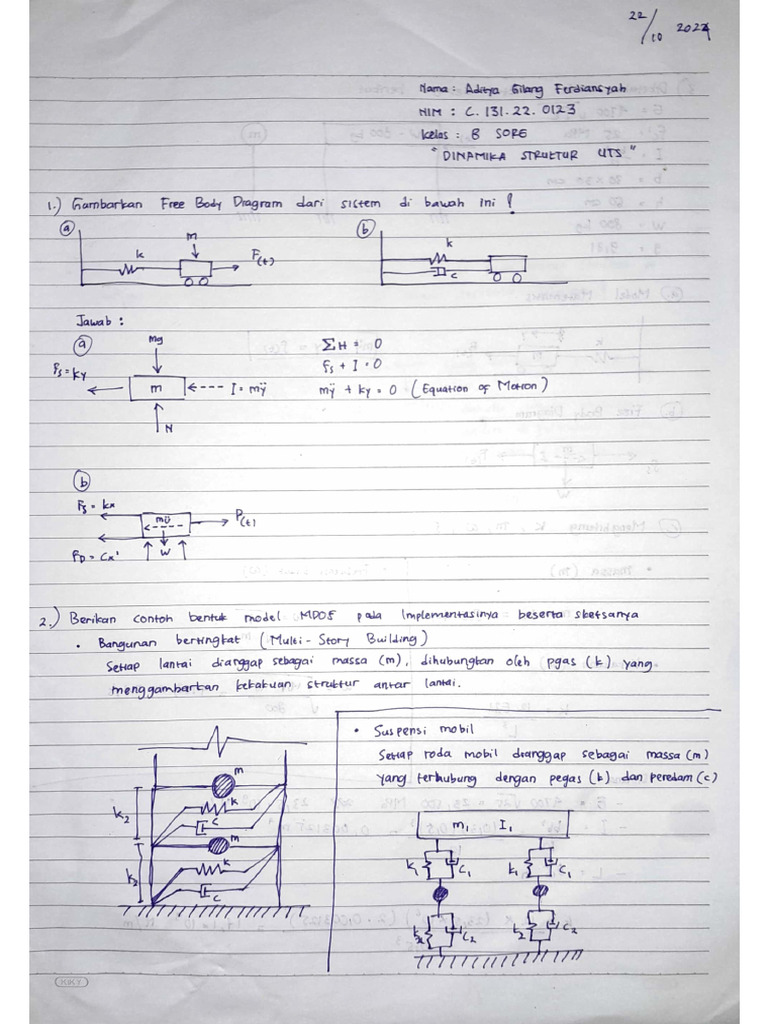 22/10 2024
Nama : Aditya Gilang Ferdiansyah
NIM : C. 131. 22. 0123
Kelas : B SORE
" DINAMIKA STRUKTUR UTS "
1.) Gambarkan Free Body Diagram dari sistem di bawah ini !
a
b
k
m
F(t)
k
c
Jawab :
a
mg
Fs = ky
m
I = mÿ
N
ΣH = 0
Fs + I = 0
mÿ + ky = 0 ( Equation of Motion )
b
Fs = kx
mÿ
P(t)
FD = Cx'
W
2.) Berikan contoh bentuk model MDOF pada Implementasinya beserta sketsanya
• Bangunan bertingkat ( Multi - Story Building )
Setiap lantai dianggap sebagai massa (m), dihubungkan oleh pgas (k) yang
menggambarkan kekakuan struktur antar lantai.
m
k2
k
c
m
k2
k
c
• Suspensi mobil
Setiap roda mobil dianggap sebagai massa (m)
yang terhubung dengan pegas (k) dan peredam (c)
m1 I1
k1 C1 k1 C1
k2 C2 k2 C2
KIKY